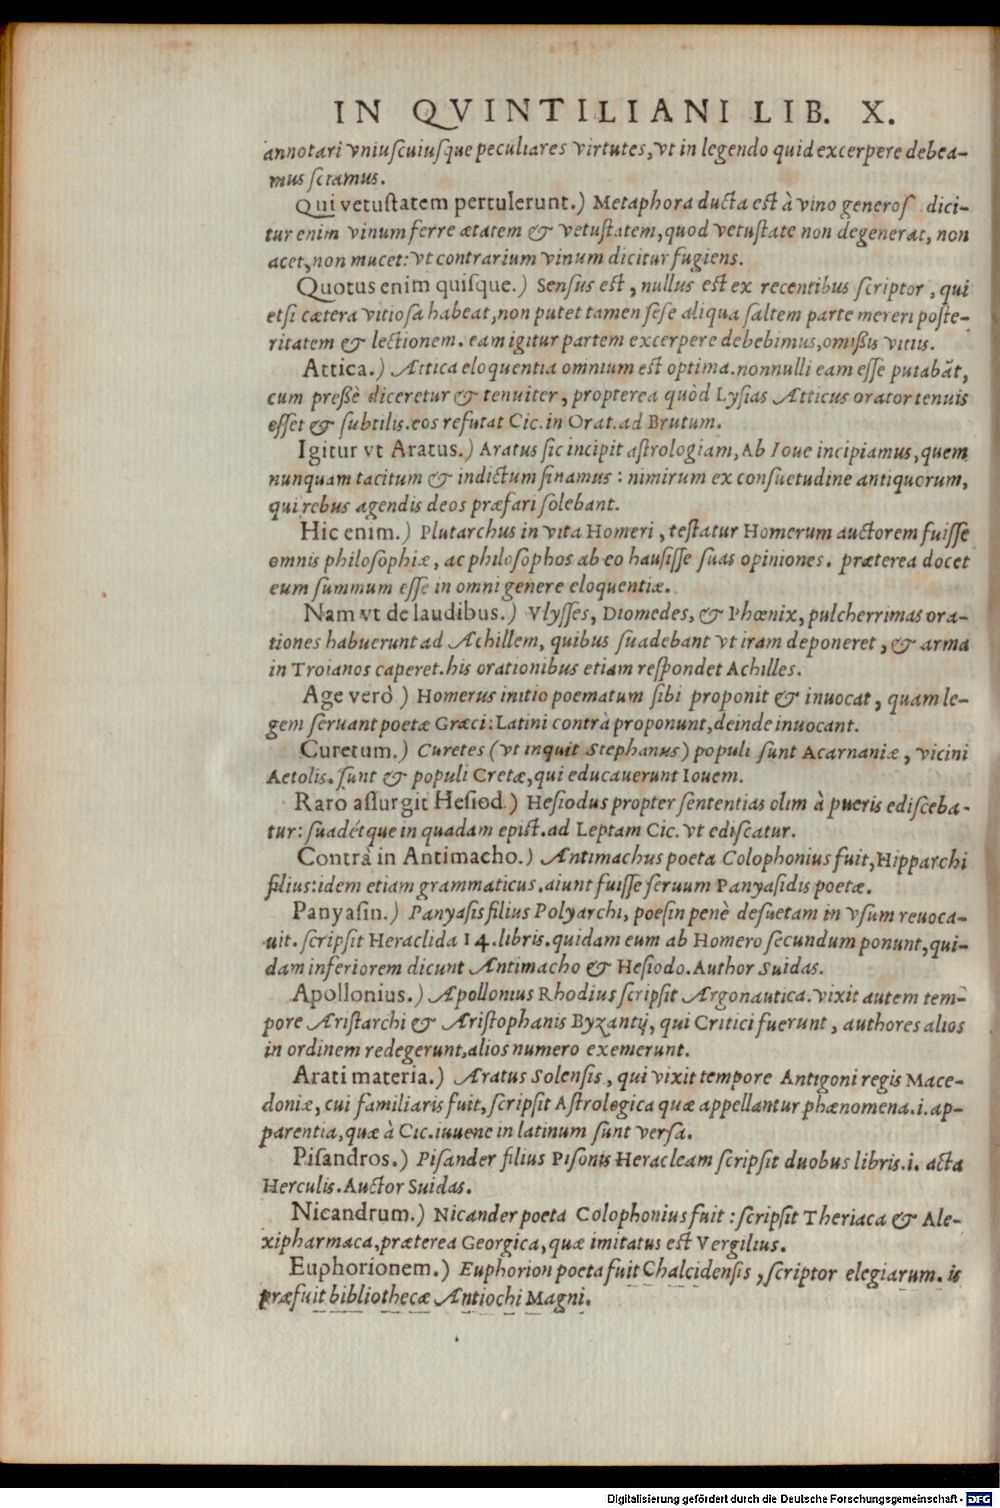 IN QVINTILIANI LIB. X.
annotari vniuſcuiuſque peculiares virtutes, vt in legendo quid excerpere debea-
mus ſciamus.
Qui vetuſtatem pertulerunt.) Metaphora ducta eſt à vino generoſ dici-
tur enim vinum ferre ætatem & vetuſtatem, quod vetuſtate non degenerat, non
acet, non mucet: vt contrarium vinum dicitur fugiens.
Quotus enim quiſque.) Senſus eſt, nullus eſt ex recentibus ſcriptor, qui
etſi cætera vitioſa habeat, non putet tamen ſeſe aliqua ſaltem parte mereri poſte-
ritatem & lectionem. eam igitur partem excerpere debebimus, omißis vitiis.
Attica.) Attica eloquentia omnium eſt optima. nonnulli eam eſſe putabāt,
cum preßè diceretur & tenuiter, propterea quòd Lyſias Atticus orator tenuis
eſſet & ſubtilis. eos refutat Cic. in Orat. ad Brutum.
Igitur vt Aratus.) Aratus ſic incipit aſtrologiam, Ab Ioue incipiamus, quem
nunquam tacitum & indictum ſinamus: nimirum ex conſuetudine antiquorum,
qui rebus agendis deos præfari ſolebant.
Hic enim.) Plutarchus in vita Homeri, teſtatur Homerum auctorem fuiſſe
omnis philoſophiæ, ac philoſophos ab eo hauſiſſe ſuas opiniones. præterea docet
eum ſummum eſſe in omni genere eloquentiæ.
Nam vt de laudibus.) Vlyſſes, Diomedes, & Phœnix, pulcherrimas ora-
tiones habuerunt ad Achillem, quibus ſuadebant vt iram deponeret, & arma
in Troianos caperet. his orationibus etiam reſpondet Achilles.
Age verò ) Homerus initio poematum ſibi proponit & inuocat, quam le-
gem ſeruant poetæ Græci: Latini contrà proponunt, deinde inuocant.
Curetum.) Curetes (vt inquit Stephanus) populi ſunt Acarnaniæ, vicini
Aetolis. ſunt & populi Cretæ, qui educauerunt Iouem.
Raro aſſurgit Heſiod.) Heſiodus propter ſententias olim à pueris ediſceba-
tur: ſuadétque in quadam epiſt. ad Leptam Cic. vt ediſcatur.
Contrà in Antimacho.) Antimachus poeta Colophonius fuit, Hipparchi
filius: idem etiam grammaticus. aiunt fuiſſe ſeruum Panyaſidis poetæ.
Panyaſin.) Panyaſis filius Polyarchi, poeſin penè deſuetam in vſum reuoca-
uit. ſcripſit Heraclida 14. libris. quidam eum ab Homero ſecundum ponunt, qui-
dam inferiorem dicunt Antimacho & Heſiodo. Author Suidas.
Apollonius.) Apollonius Rhodius ſcripſit Argonautica. vixit autem tem-
pore Ariſtarchi & Ariſtophanis Byzantij, qui Critici fuerunt, authores alios
in ordinem redegerunt, alios numero exemerunt.
Arati materia.) Aratus Solenſis, qui vixit tempore Antigoni regis Mace-
doniæ, cui familiaris fuit, ſcripſit Aſtrologica quæ appellantur phænomena. i. ap-
parentia, quæ à Cic. iuuene in latinum ſunt verſa.
Piſandros.) Piſander filius Piſonis Heracleam ſcripſit duobus libris. i. acta
Herculis. Auctor Suidas.
Nicandrum.) Nicander poeta Colophonius fuit: ſcripſit Theriaca & Ale-
xipharmaca, præterea Georgica, quæ imitatus eſt Vergilius.
Euphorionem.) Euphorion poeta fuit Chalcidenſis, ſcriptor elegiarum. is
præfuit bibliothecæ Antiochi Magni.
Digitalisierung gefördert durch die Deutsche Forschungsgemeinschaft - DFG